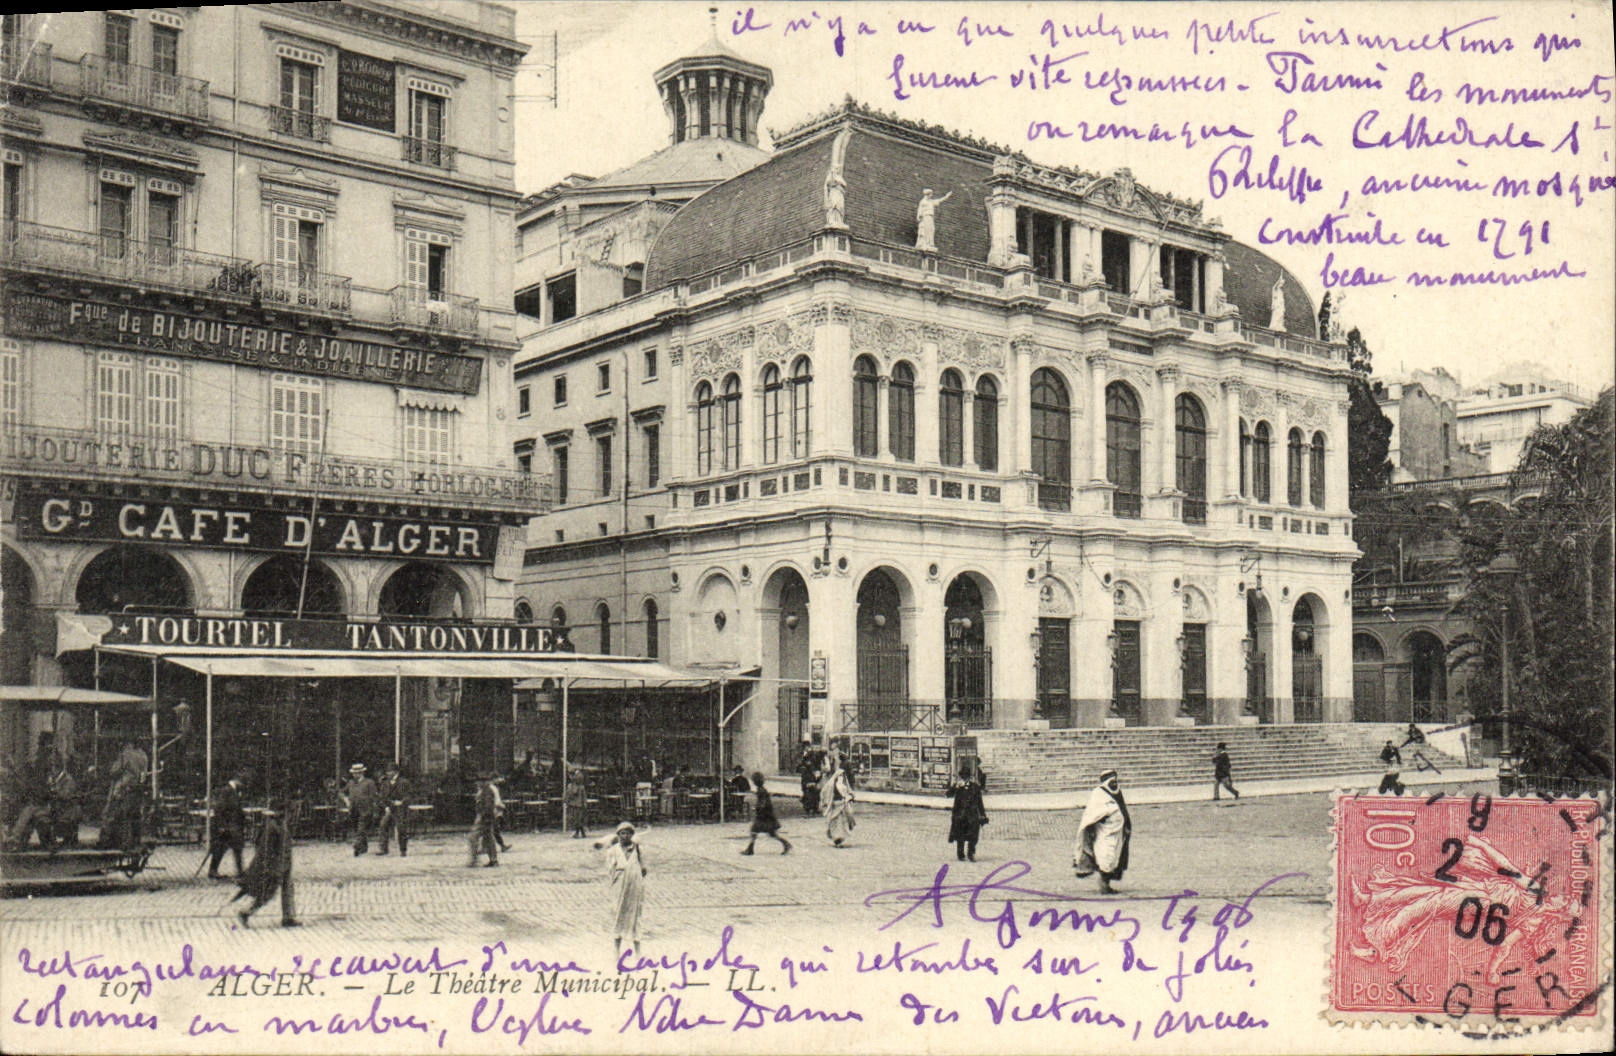 il n'y a eu que quelques petite insurrections qui
furent vite repoussées - Parmi les monuments
on remarque la Cathedrale St
Philippe, ancienne mosquée
construite en 1791
beau monument
G. PRODON
PÉDICURE
MASSEUR
Fque de BIJOUTERIE & JOAILLERIE
FRANÇAISE & INDIGÈNE
BIJOUTERIE DUC FRÈRES HORLOGERIE
GD CAFE D'ALGER
★TOURTEL TANTONVILLE★
1906
rectangulaire, recouvert d'une coupole qui retombe sur de jolies
107 ALGER. - Le Théâtre Municipal. - LL.
colonnes en marbre, l'église Notre Dame des Victoires, ancien
10c
RÉPUBLIQUE FRANÇAISE
POSTES
9
2 -4
06
ALGER